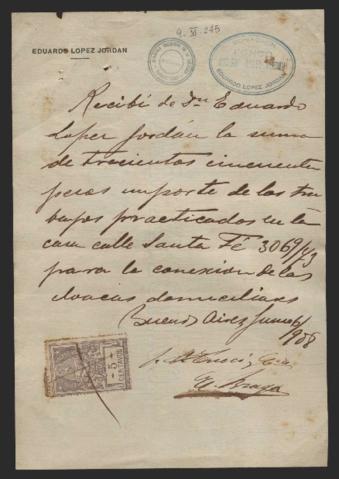 9. XI 245
EDUARDO LOPEZ JORDAN
EDUARDO LOPEZ JORDAN
Recibí de Dn Eduardo
Lopez Jordán la suma
de trecientos cincuenta
pesos importe de los tra
bajos practicados en la
casa calle Santa Fé 3069/73
para la conexion de las
cloacas domiciliares
Buenos Aires Junio
908
5